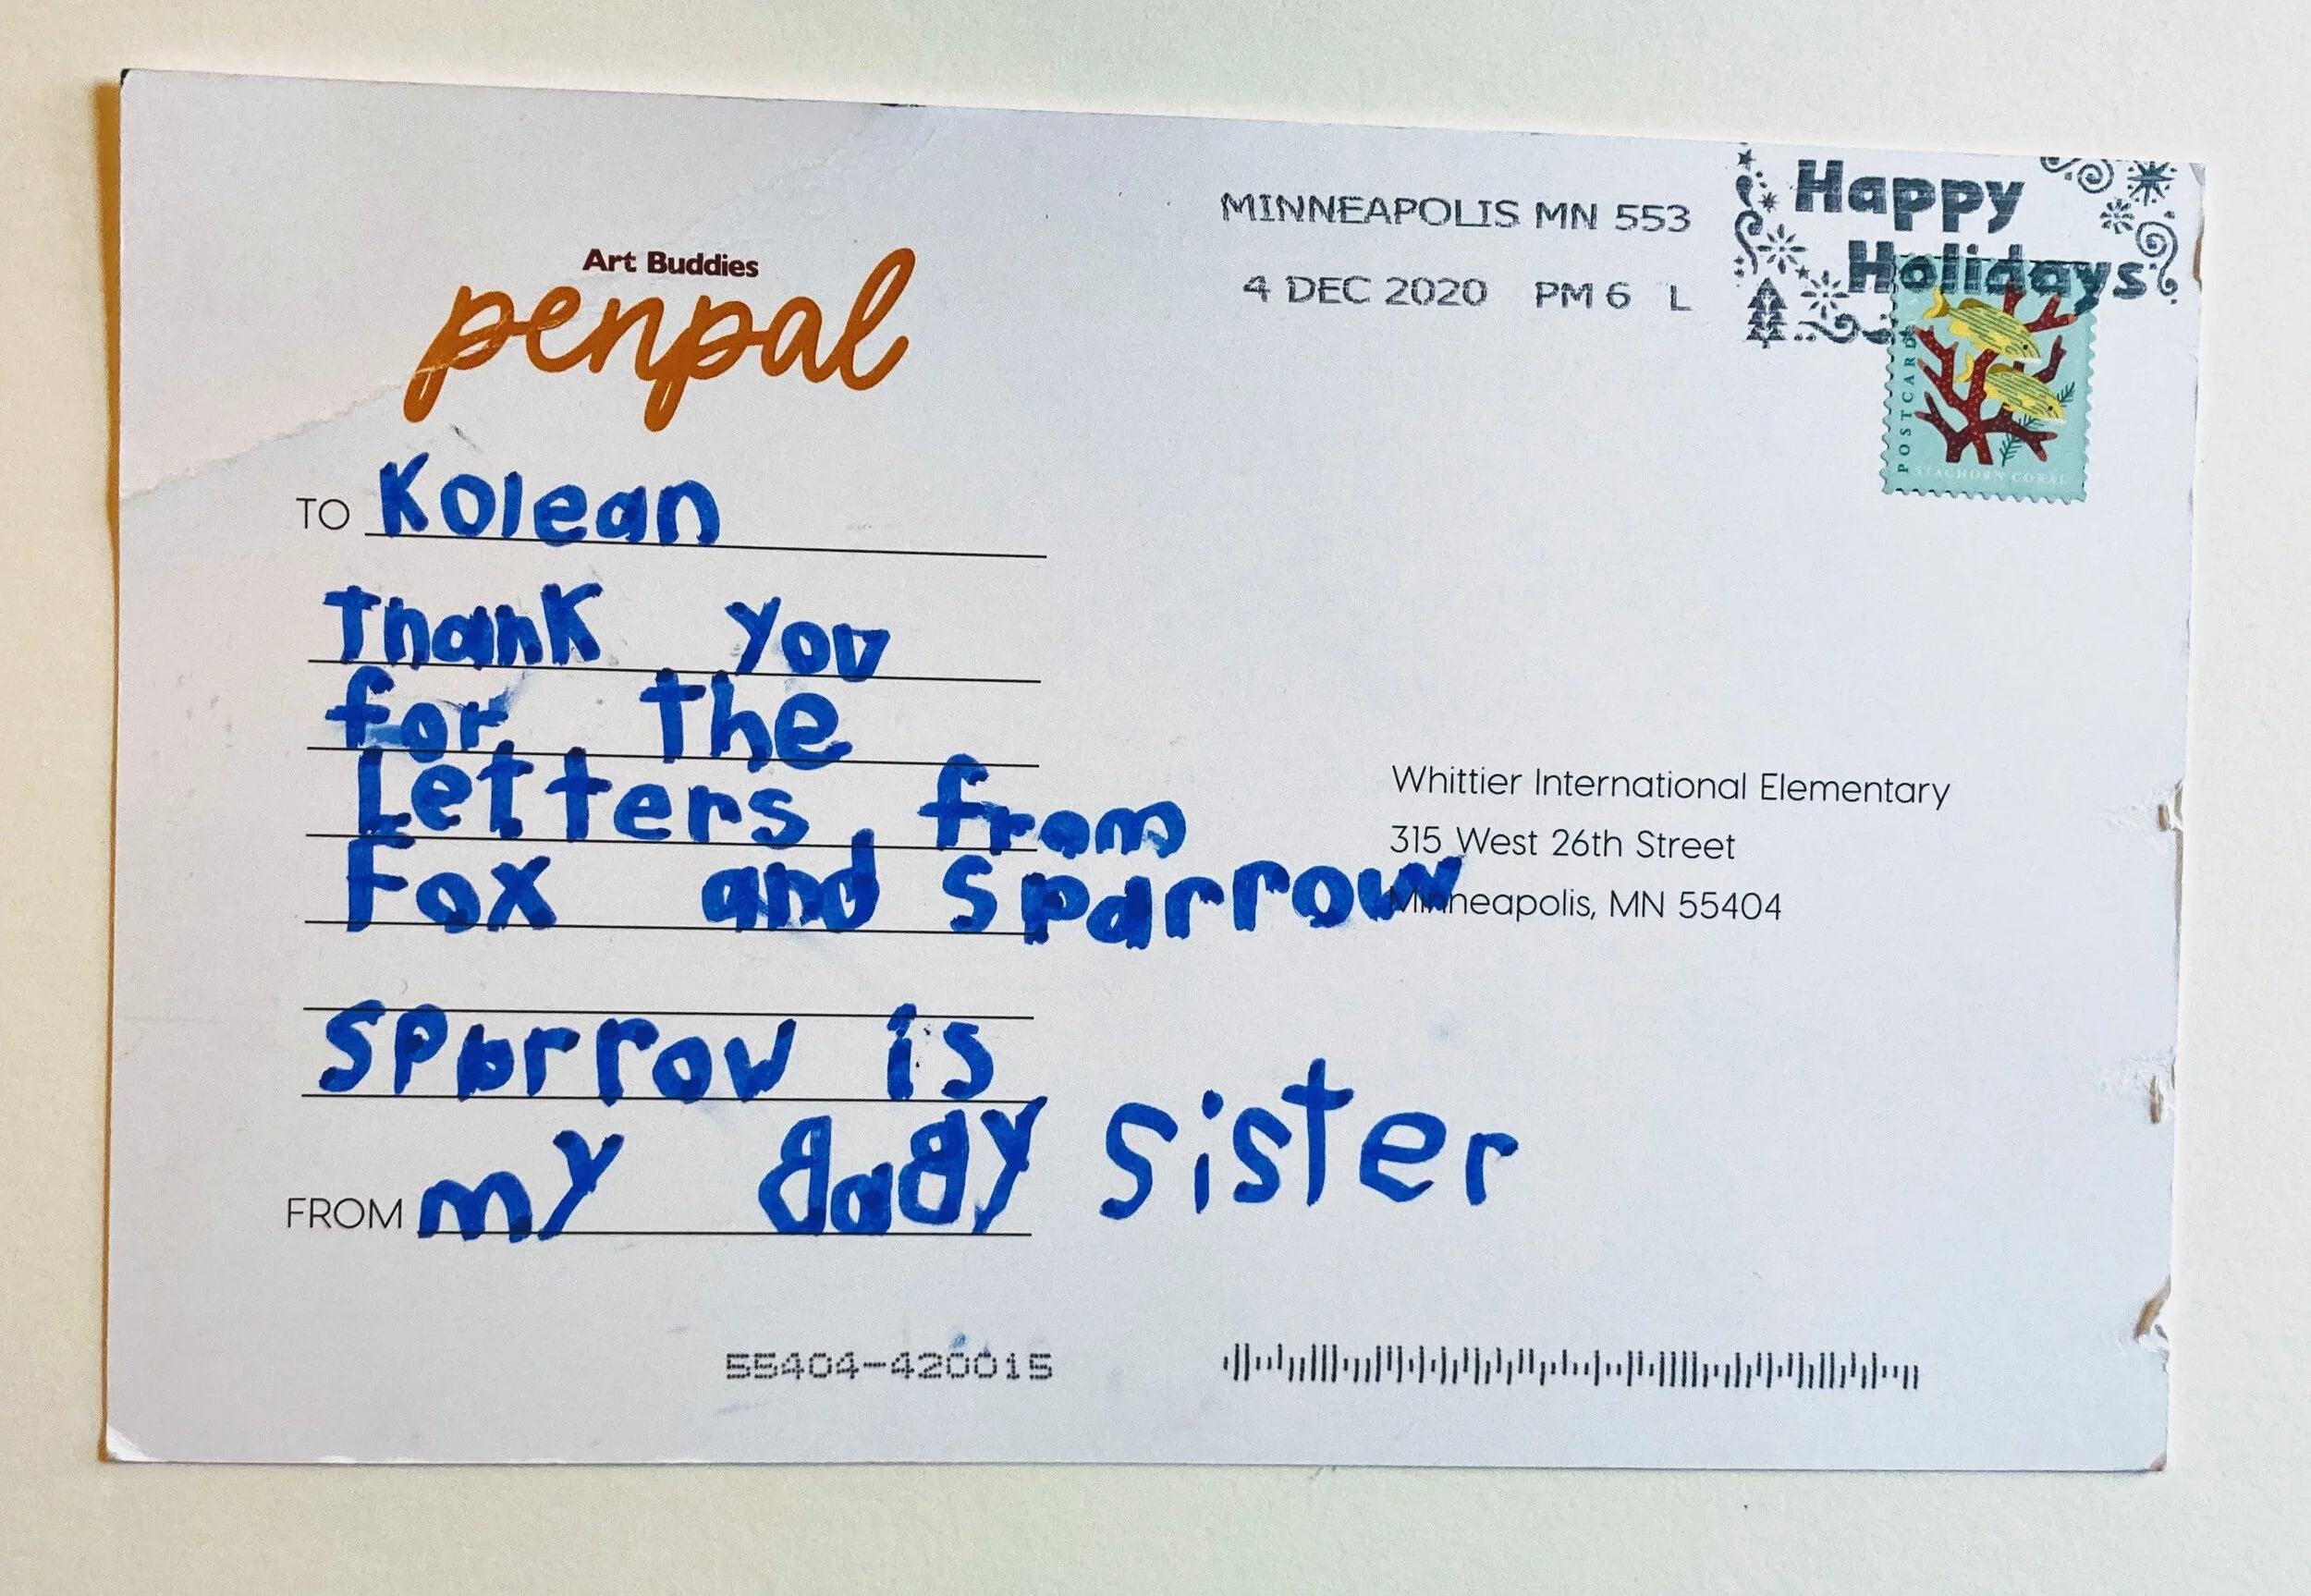 Art Buddies
penpal
TO Kolean
Thank you
for the
Letters from
Fox and Sparrow
Sparrow is
FROM my BaBy sister
MINNEAPOLIS MN 553
4 DEC 2020 PM 6 L
Happy
Holidays
POSTCARD
STAGHORN CORAL
Whittier International Elementary
315 West 26th Street
Minneapolis, MN 55404
55404-420015